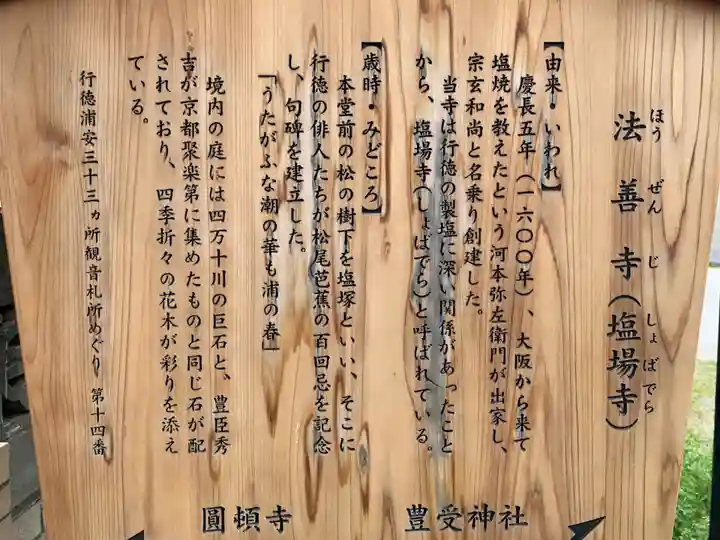 法善寺(塩場寺)
ほうぜんじ しょばでら
【由来・いわれ】
慶長五年(一六〇〇年)、大阪から来て
塩焼を教えたという河本弥左衛門が出家し、
宗玄和尚と名乗り創建した。
当寺は行徳の製塩に深い関係があったこと
から、塩場寺(しょばでら)と呼ばれている。
【歳時・みどころ】
本堂前の松の樹下を塩塚といい、そこに
行徳の俳人たちが松尾芭蕉の百回忌を記念
し、句碑を建立した。
「うたがふな潮の華も浦の春」
境内の庭には四万十川の巨石と、豊臣秀
吉が京都聚楽第に集めたものと同じ石が配
されており、四季折々の花木が彩りを添え
ている。
行徳浦安三十三ヵ所観音札所めぐり 第十四番
豊受神社
圓頓寺